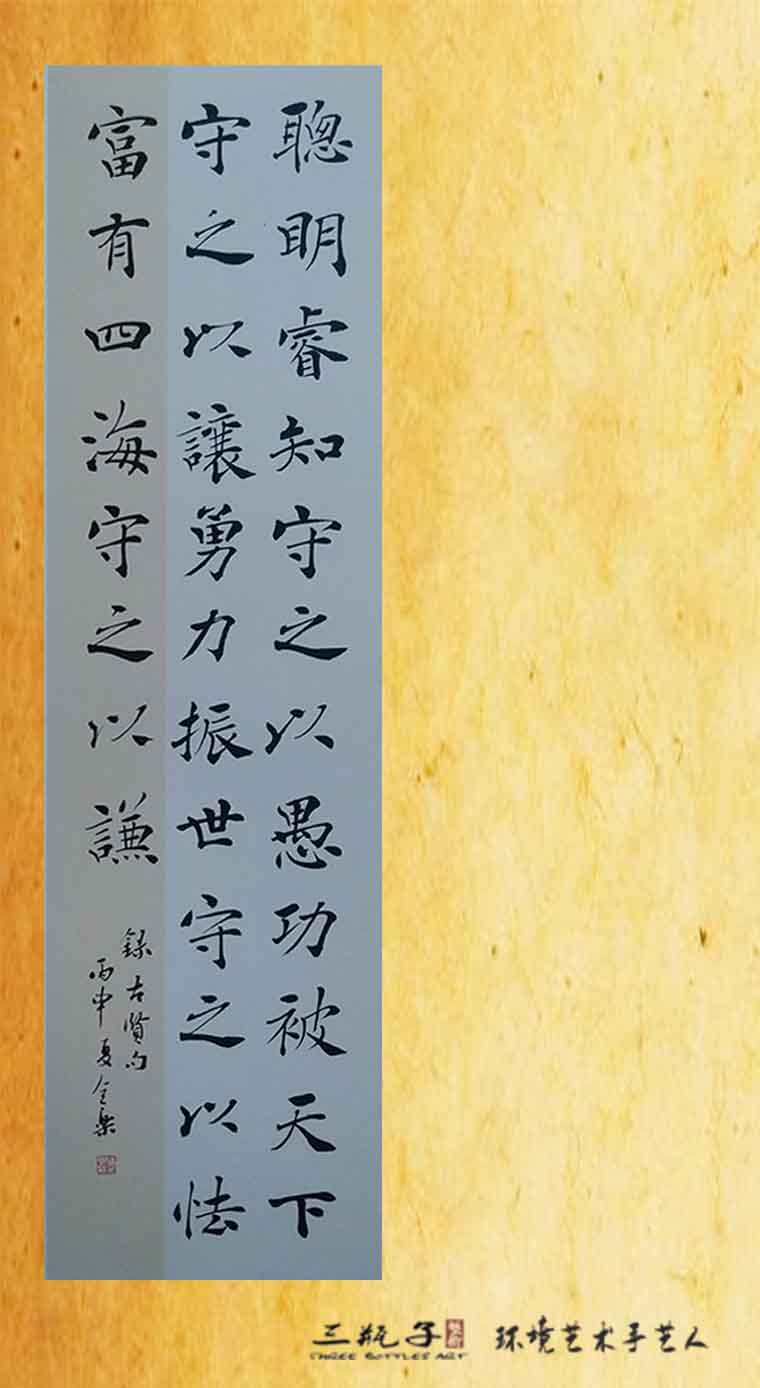 聰明睿知守之以愚功被天下
守之以讓勇力振世守之以怯
富有四海守之以謙
錄古贤句
丙申夏全樂
三瓶子 環境艺术手艺人
THREE BOTTLES ART